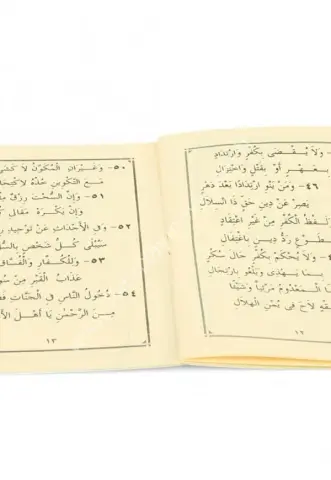 وَلاَ يُقْضَى بِكُفْرٍ وَارْتِدَادٍ
بِعَهْرٍ أَوْ بِقَتْلٍ وَاخْتِزَالِ
٤٦- وَمَنْ يَنْوِ ارْتِدَادًا بَعْدَ دَهْرٍ
يَصِرْ عَنْ دِينِ حَقٍّ ذَا انْسِلاَلِ
لَفْظُ الْكُفْرِ مِنْ غَيْرِ اعْتِقَادٍ
طَوْعٍ رَدُّ دِينٍ بِاغْتِفَالِ
وَلاَ يُحْكَمْ بِكُفْرٍ حَالَ سُكْرٍ
بِمَا يَهْذِي وَيَلْغُو بِارْتِجَالِ
الْمَعْدُومُ مَرْئِيًّا وَشَيْئًا
لاَحَ فِي يُمْنِ الْهِلاَلِ
١٢
٥٠- وَغَيْرَانِ الْمُكَوَّنُ لاَ كَشَيْ
مَعَ التَّكْوِينِ خُذْهُ لاِكْتِحَا
٥١- وَإِنَّ السُّحْتَ رِزْقٌ
وَإِنْ يَكْرَهْ مَقَالِي كُ
٥٢- وَفِي الأَجْدَاثِ عَنْ تَوْحِيدِ رَ
سَيُبْلَى كُلُّ شَخْصٍ بِالسُّ
٥٣- وَلِلْكُفَّارِ وَالْفُسَّاقِ
عَذَابُ الْقَبْرِ مِنْ سُو
٥٤- دُخُولُ النَّاسِ فِي الْجَنَّاتِ فَضْ
مِنَ الرَّحْمٰنِ يَا أَهْلَ الأَ
١٣